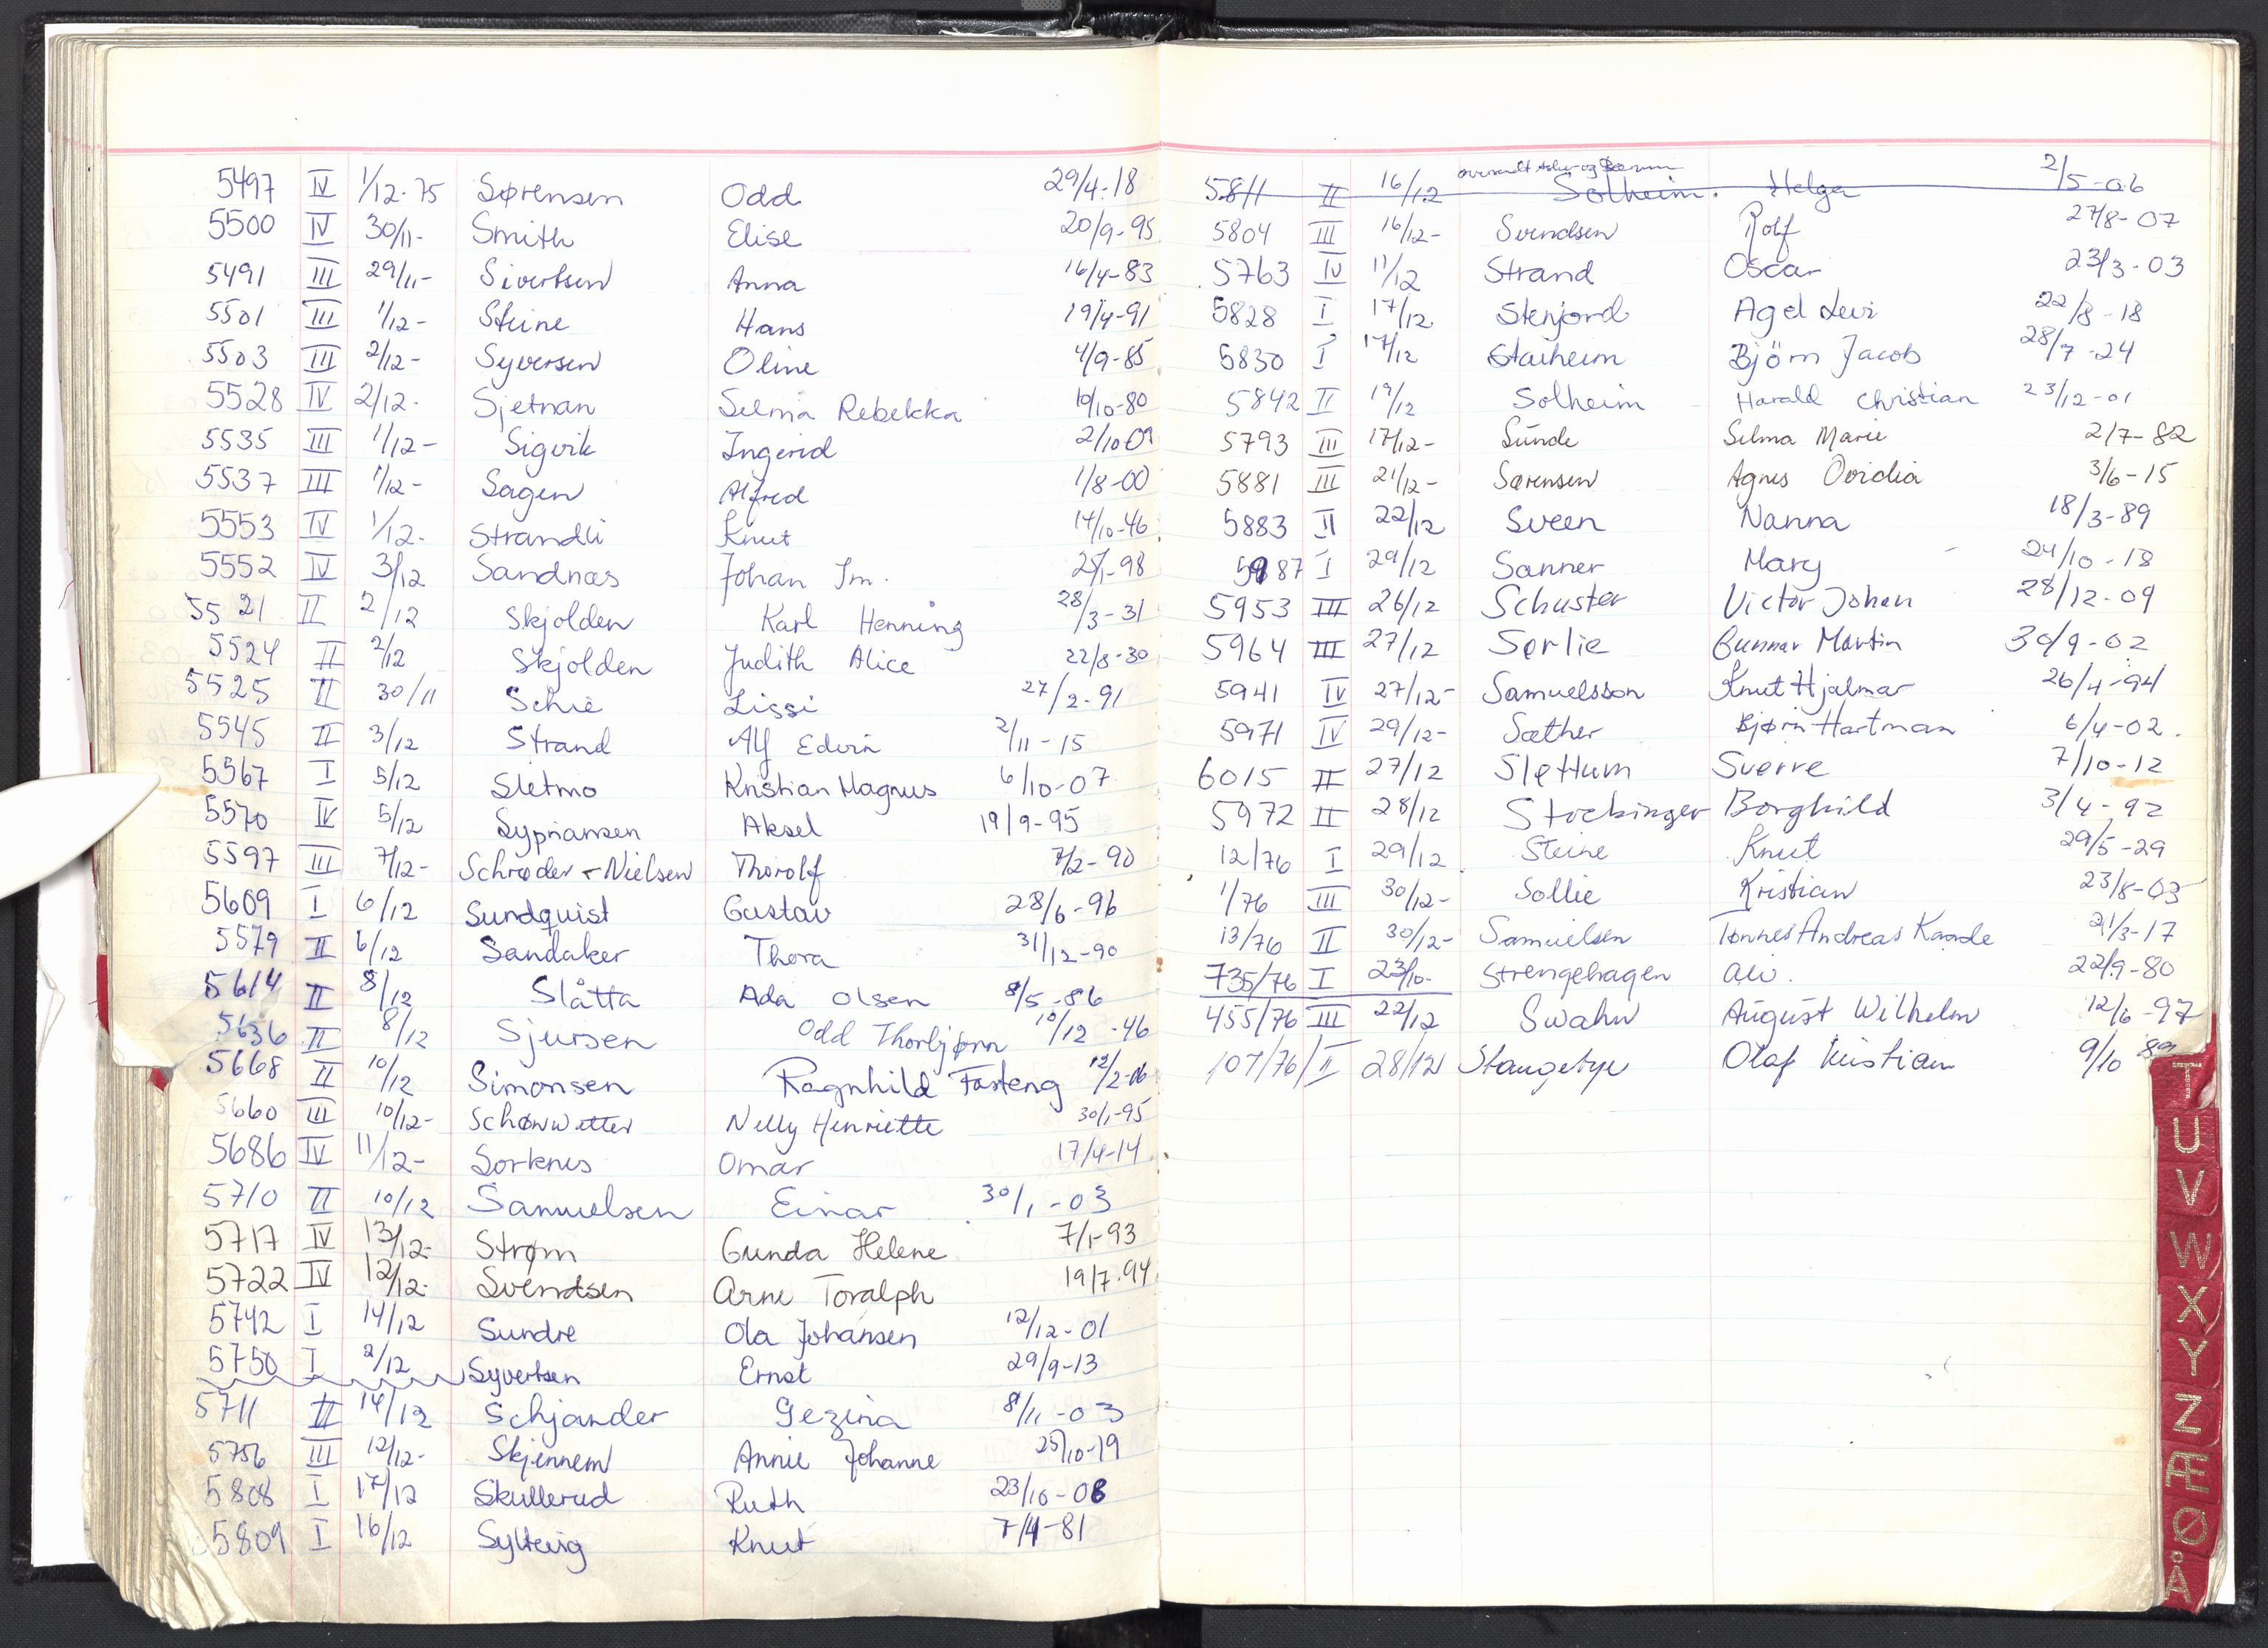 5497 IV 1/12-75 Sørensen Odd 29/4-18
5500 IV 30/11- Smith Elise 20/9-95
5491 III 29/11- Sivertsen Anna 16/4-83
5501 III 1/12- Steine Hans 19/4-91
5503 III 2/12- Syversen Oline 4/9-85
5528 IV 2/12- Sjetnan Selma Rebekka 10/10-80
5535 III 1/12- Sigvik Ingerid 2/10-09
5537 III 1/12- Sagen Alfred 1/8-00
5553 IV 1/12- Strandli Knut 14/10-46
5552 IV 3/12 Sandnæs Johan Im. 25/1-98
5521 II 2/12 Skjolden Karl Henning 28/3-31
5524 II 2/12 Skjolden Judith Alice 22/8-30
5525 II 30/11 Schie Lissi 27/2-91
5545 II 3/12 Strand Alf Edvin 2/11-15
5567 I 5/12 Sletmo Kristian Magnus 6/10-07
5570 IV 5/12 Sypriansen Aksel 19/9-95
5597 III 7/12- Schrøder-Nielsen Thorolf 7/2-90
5609 I 6/12 Sundquist Gustav 28/6-96
5579 II 6/12 Sandaker Thora 31/12-90
5614 II 8/12 Slåtta Ada Olsen 8/5-86
5636 II 8/12 Sjursen Odd Thorbjørn 10/12-46
5668 II 10/12 Simonsen Ragnhild Fasteng 12/2-06
5660 III 10/12- Schønwetter Nelly Henriette 30/1-95
5686 IV 11/12- Sorknes Omar 17/4-14
5710 II 10/12 Samuelsen Einar 30/1-03
5717 IV 13/12- Strøm Gunda Helene 7/1-93
5722 IV 12/12- Svendsen Arne Toralph 19/7-94
5742 I 14/12 Sundre Ola Johansen 12/12-01
5750 I 2/12 Syvertsen Ernst 29/9-13
5711 II 14/12 Schjander Gezina 8/11-03
5756 III 12/12- Skjennem Annie Johanne 25/10-19
5808 I 17/12 Skullerud Ruth 23/10-08
5809 I 16/12 Sylteig Knut 7/4-81
oversendt Asker og Bærum
5811 II 16/12 Solheim. Helga 2/5-06
5804 III 16/12- Svendsen Rolf 27/8-07
5763 IV 11/12 Strand Oscar 23/3-03
5828 I 17/12 Stenjord Agel Levi 22/8-18
5830 I 17/12 Starheim Bjørn Jacob 28/7-24
5842 II 19/12 Solheim Harald Christian 23/12-01
5793 III 17/12- Sunde Selma Marie 2/7-82
5881 III 21/12- Sørensen Agnes Ovidia 3/6-15
5883 II 22/12 Sveen Nanna 18/3-89
5987 I 29/12 Sanner Mary 24/10-18
5953 III 26/12 Schuster Victor Johan 28/12-09
5964 III 27/12 Sørlie Gunnar Martin 30/9-02
5941 IV 27/12- Samuelsson Knut Hjalmar 26/4-94
5971 IV 29/12- Sæther Bjørn Hartman 6/4-02.
6015 II 27/12 Slettum Sverre 7/10-12
5972 II 28/12 Stockinger Borghild 3/4-92
12/76 I 29/12 Steine Knut 29/5-29
1/76 III 30/12- Sollie Kristian 23/8-03
13/76 II 30/12- Samuelsen Tønnes Andreas Kaade 21/3-17
735/76 I 23/10- Strengehagen Alv. 22/9-80
455/76 III 22/12 Swahn August Wilhelm 12/6-97
107/76 II 28/12 Stangebye Olaf Kristian 9/10 89
T
U
V
W
X
Y
Z
Æ
Ø
Å